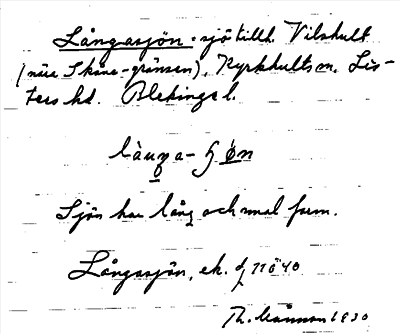 Långasjön - sjö tillh. Vilshult
(nära Skåne-gränsen), Kyrkhults sn. Lis-
ters hd. Blekinge l.
làŋa- ʃ øn
Sjön har lång och smal form.
Långasjön, ek.
Th. 1930